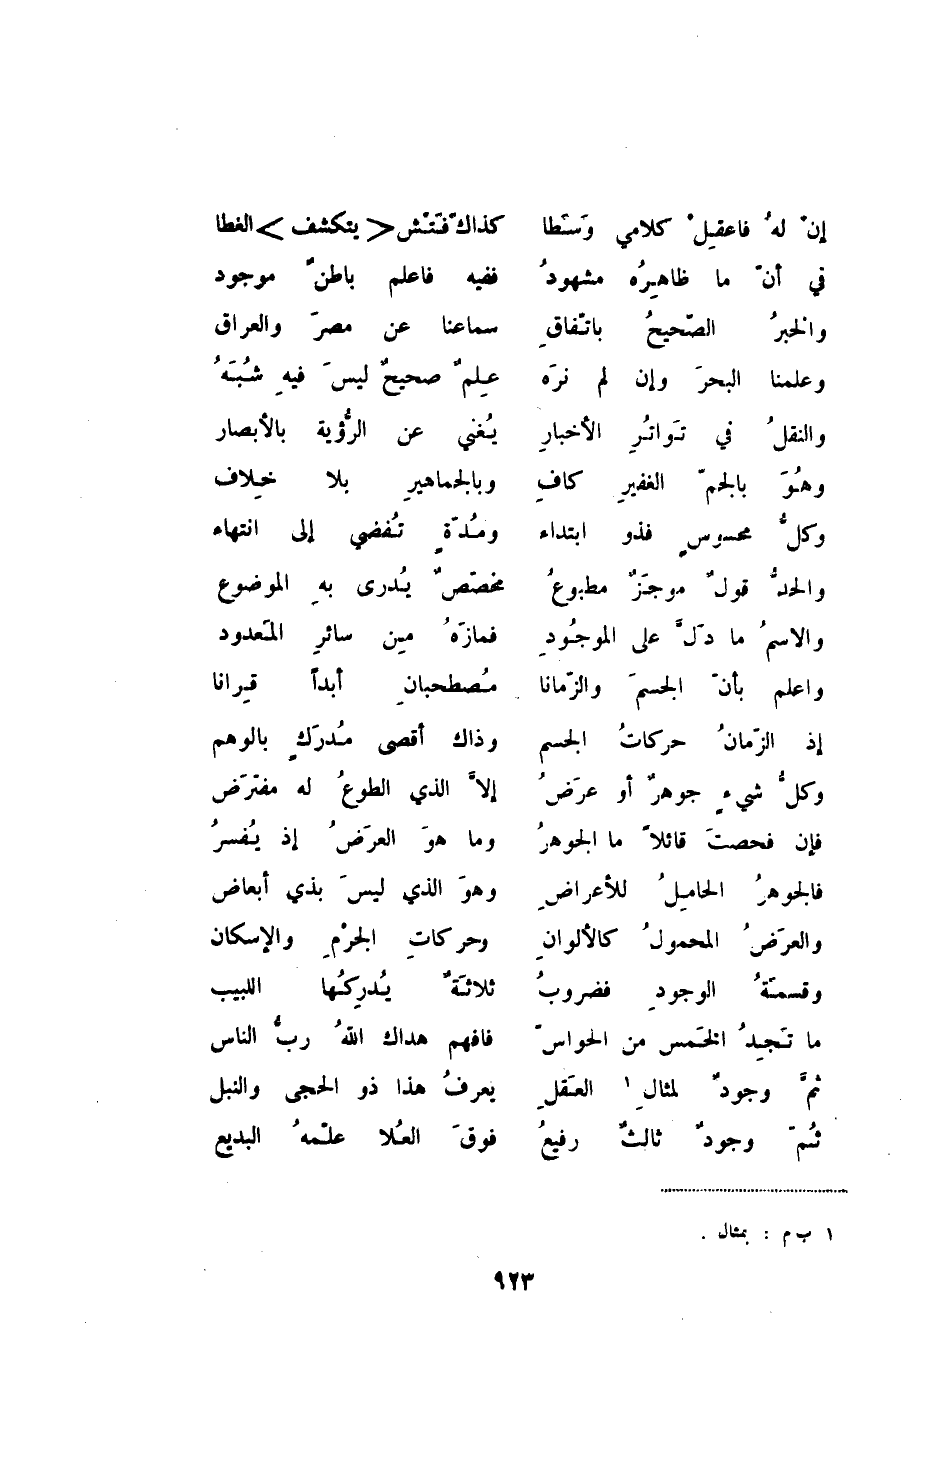 إنْ لهُ فاعقِلْ كلامي وَسَطا كذاكَ فَتّشْ < يتكشف > الغطا
في أنّ ما ظاهِرُه مشهودُ ففيه فاعلم باطنٌ موجود
والخبرُ الصّحيحُ باتّفاقِ سماعنا عن مصرَ والعراق
وعلمنا البحرَ وإن لم نرَه عِلمٌ صحيحٌ ليسَ فيهِ شُبَهُ
والنقلُ في تَواتُرِ الأخبارِ يُغني عن الرُّؤية بالأبصار
وهُوَ بالجمّ الغفيرِ كافِ وبالجماهيرِ بلا خِلاف
وكلُّ محسوسٍ فذو ابتداء ومُدّةٍ تُفضي إلى انتهاء
والحدُّ قولٌ موجَزٌ مطبوعُ مخصّصٌ يُدرى بهِ الموضوع
والاسمُ ما دَلَّ على الموجُودِ فمازَهُ مِن سائرِ المَعدود
واعلم بأنّ الجسمَ والزّمانا مُصطحبانِ أبداً قِرانا
إذ الزّمانُ حركاتُ الجسم وذاك أقصى مُدرَكٍ بالوهم
وكلُّ شيءٍ جوهرٌ أو عرَضُ إلاَّ الذي الطوعُ له مفتَرَض
فإن فحصتَ قائلاً ما الجوهرُ وما هوَ العرَضُ إذ يُفسرُ
فالجوهرُ الحامِلُ للأعراضِ وهوَ الذي ليسَ بذي أبعاض
والعرَضُ المحمولُ كالألوانِ وحركاتِ الجرْمِ والإسكان
وقسمَةُ الوجودِ فضروبُ ثلاثَةٌ يُدرِكُها اللبيب
ما تَجِدُ الخَمس من الحواسّ فافهم هداك اللهُ ربُّ الناس
ثمَّ وجودٌ لمثالِ ١ العَقلِ يعرفُ هذا ذو الحجى والنبل
ثُمّ وجودٌ ثالثٌ رفيعُ فوقَ العُلا علّمهُ البديع
١ ب م : بمثال .
٩٢٣